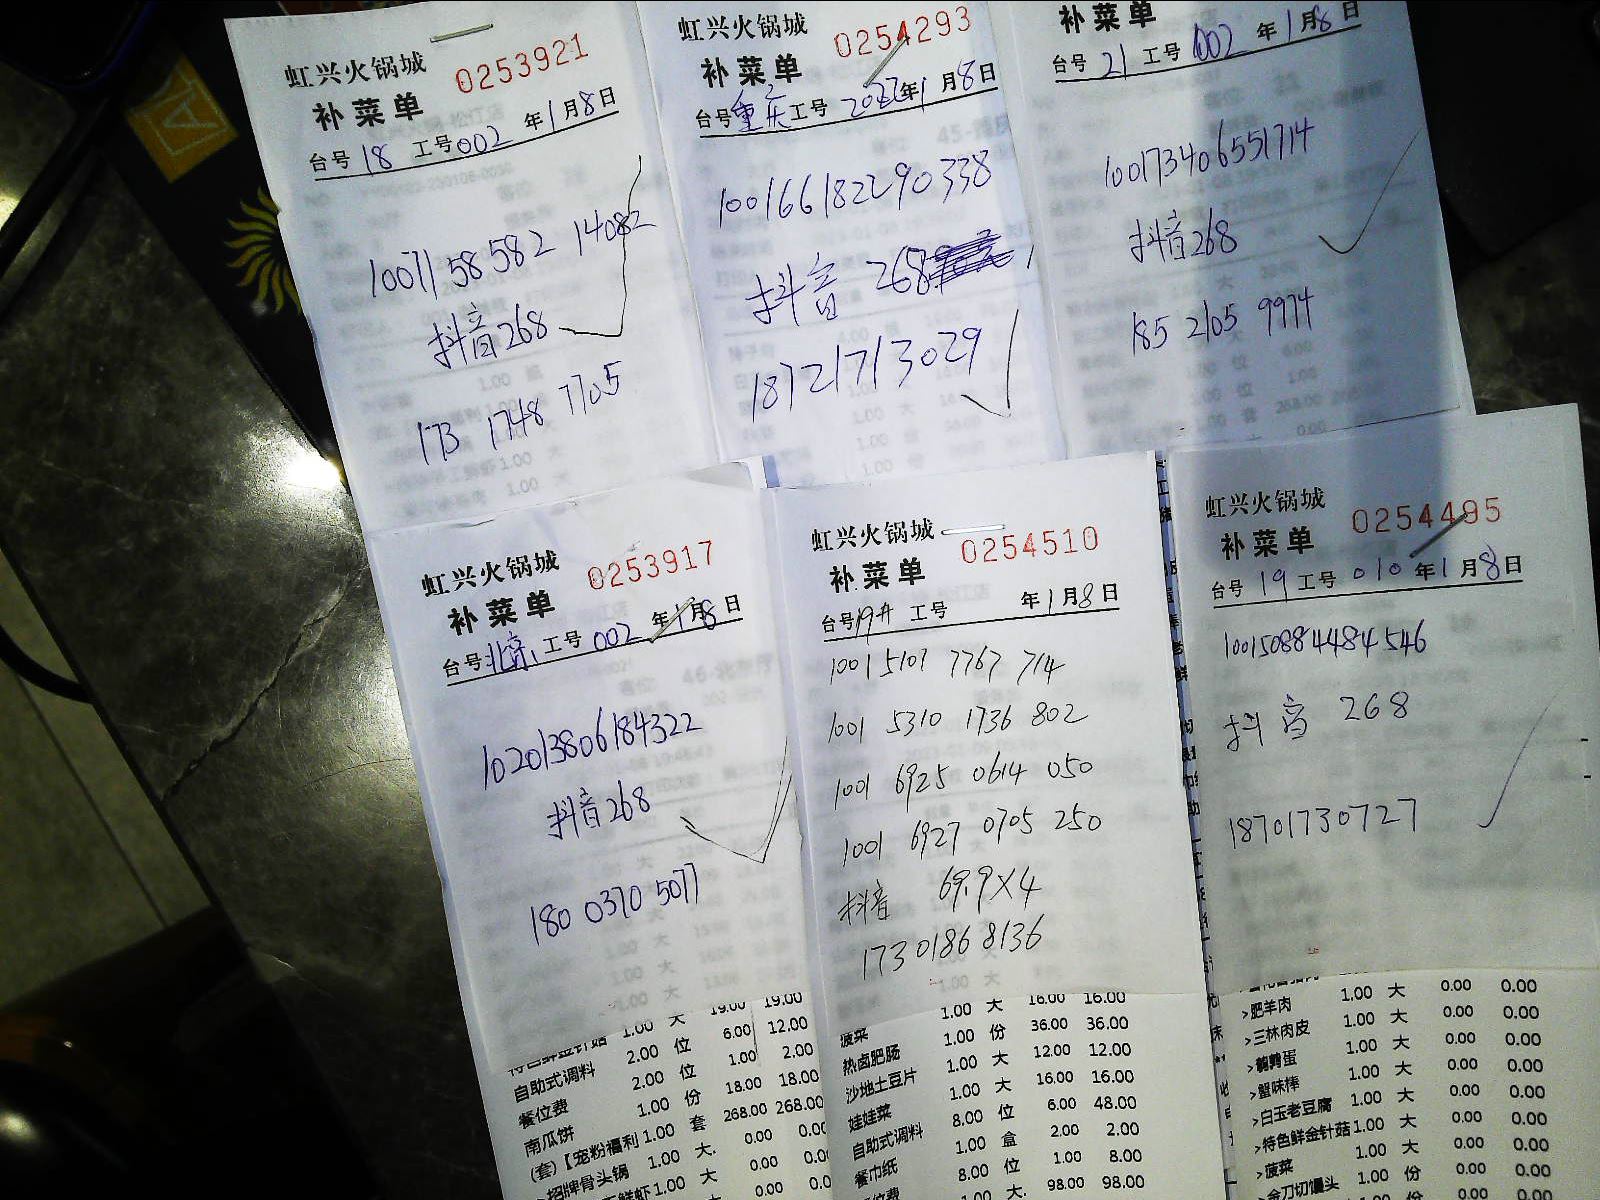 虹兴火锅城
0253921
补菜单
台号 18 工号 002 年 1 月 8 日
10071 58 582 14082
抖音268
173 1748 7705
虹兴火锅城
0254293
补菜单
台号 重庆 工号 2022 年 1 月 8 日
1001661822 90338
抖音 268
18721713029
补菜单
台号 21 工号 002 年 1 月 8 日
100173406551714
抖音268
185 2105 9974
虹兴火锅城
0253917
补菜单
台号 北京 工号 002 年 1 月 8 日
102013806184322
抖音268
180 0370 5077
特色鲜金针菇 1.00 大 19.00 19.00
自助式调料 2.00 位 6.00 12.00
餐位费 2.00 位 1.00 2.00
南瓜饼 1.00 份 18.00 18.00
(套)【宠粉福利 1.00 套 268.00 268.00
>招牌骨头锅 1.00 大. 0.00 0.00
1.00 大 0.00
虹兴火锅城
0254510
补菜单
台号 19# 工号 年 1 月 8 日
1001 5107 7767 714
1001 5310 1736 802
1001 6925 0614 050
1001 6927 0705 250
抖音 69.9×4
1730186 8136
菠菜 1.00 大 16.00 16.00
热卤肥肠 1.00 份 36.00 36.00
沙地土豆片 1.00 大 12.00 12.00
娃娃菜 1.00 大 16.00 16.00
自助式调料 8.00 位 6.00 48.00
餐巾纸 1.00 盒 2.00 2.00
餐位费 8.00 位 1.00 8.00
1.00 大. 98.00 98.00
虹兴火锅城
0254495
补菜单
台号 19 工号 010 年 1 月 8 日
100150884484546
抖音 268
18701730727
>肥羊肉 1.00 大 0.00 0.00
>三林肉皮 1.00 大 0.00 0.00
>鹌鹑蛋 1.00 大 0.00 0.00
>蟹味棒 1.00 大 0.00 0.00
>白玉老豆腐 1.00 大 0.00 0.00
>特色鲜金针菇 1.00 大 0.00 0.00
>菠菜 1.00 大 0.00 0.00
>金刀切馒头 1.00 份 0.00 0.00